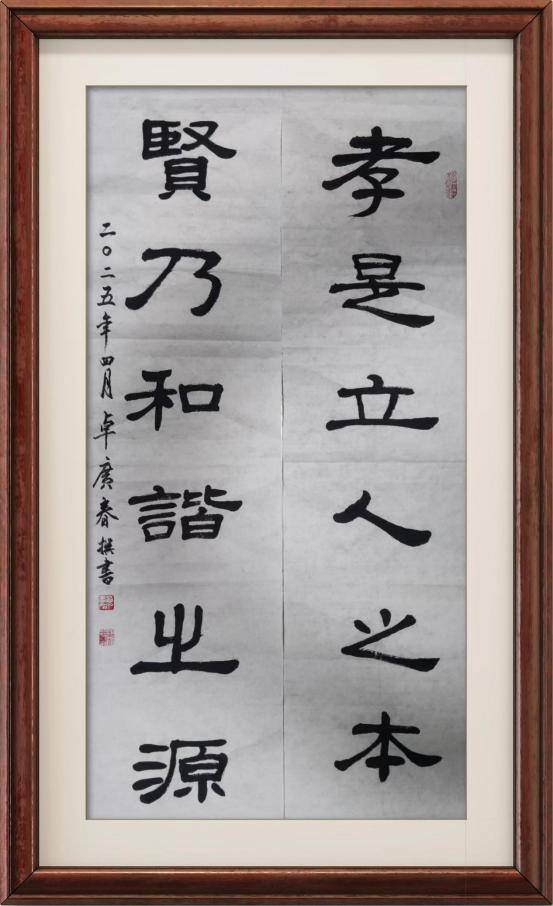 孝是立人之本
賢乃和諧之源
二〇二五年四月卓廣春撰書